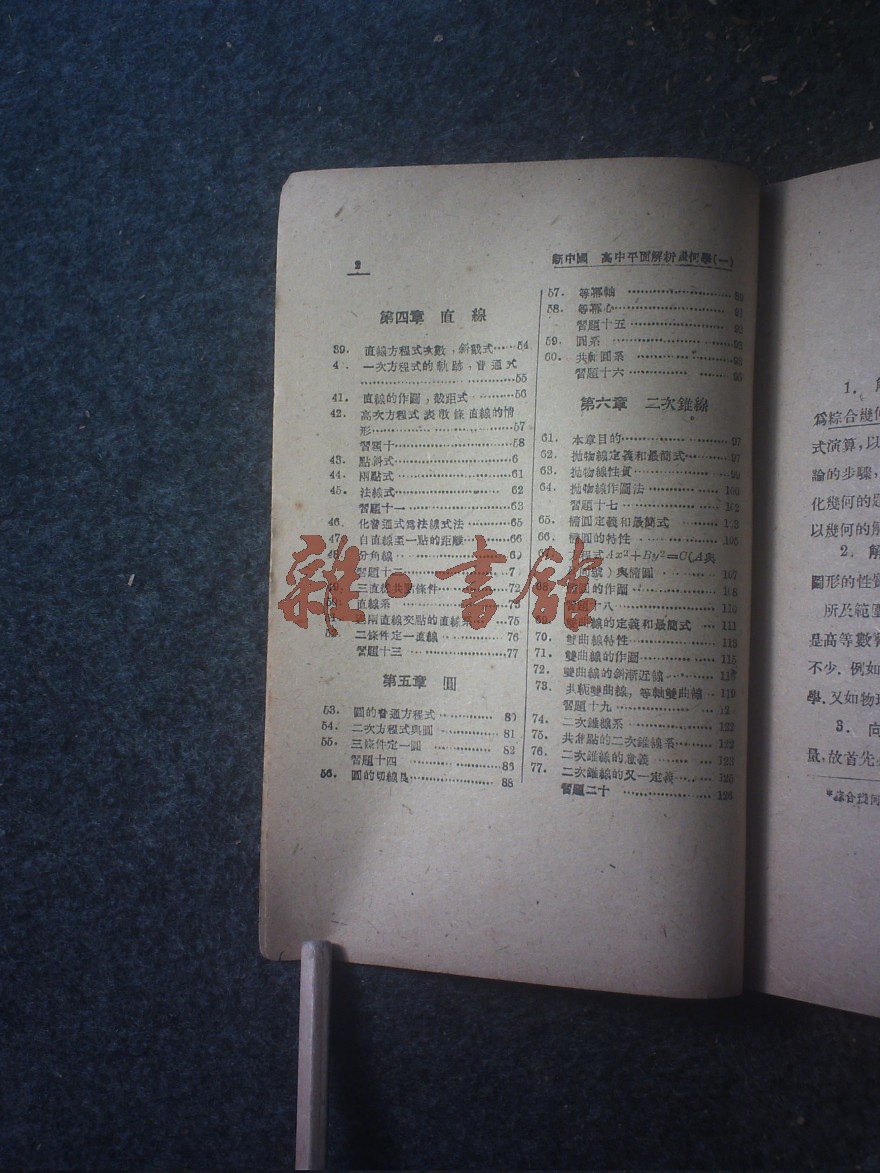 2
新中國 高中平面解析幾何學(一)
第四章 直線
39. 直線方程式次數,斜截式……54
一次方程式的軌跡,普通式
……55
41. 直線的作圖,截距式……56
42. 高次方程式表數條直線的情
形……57
習題十……58
43. 點斜式……6
44. 兩點式……61
45. 法線式…… 62
習題十一……63
46. 化普通式爲法線式法……65
47. 自直線至一點的距離……66
分角線……
習題十二……7
三直線共點條件……72
直線系……
兩直線交點的直線系……75
二條件定一直線……76
習題十三……77
第五章 圓
53. 圓的普通方程式……80
54. 二次方程式與圓……81
55. 三條件定一圓……82
習題十四……86
56. 圓的切線長……88
57. 等冪軸……
58. 等冪心……
習題十五……
59. 圓系……
60. 共軸圓系……
習題十六……
第六章 二次錐線
61. 本章目的……97
62. 拋物線定義和最簡式……97
63. 拋物線性質……99
64. 拋物線作圖法……100
習題十七……102
65. 橢圓定義和最簡式……103
66. 橢圓的特性……105
程式Ax²+By²=C(A與
號)與橢圓……107
圓的作圖……108
十八……110
曲線的定義和最簡式…111
70. 雙曲線特性……113
71. 雙曲線的作圖……115
72. 雙曲線的斜漸近線……
73. 共軛雙曲線,等軸雙曲線…119
習題十九……12
74. 二次錐線系……122
75. 共焦點的二次錐線系……
76. 二次錐線的意義……123
77. 二次錐線的又一定義……125
習題二十……126
1. 解
爲綜合幾何
式演算,以
論的步驟,
化幾何的題
以幾何的解
2. 解
圖形的性質
所及範圍
是高等數
不少.例如
學.又如物理
3. 向
量,故首先
*綜合幾何
雜·書館